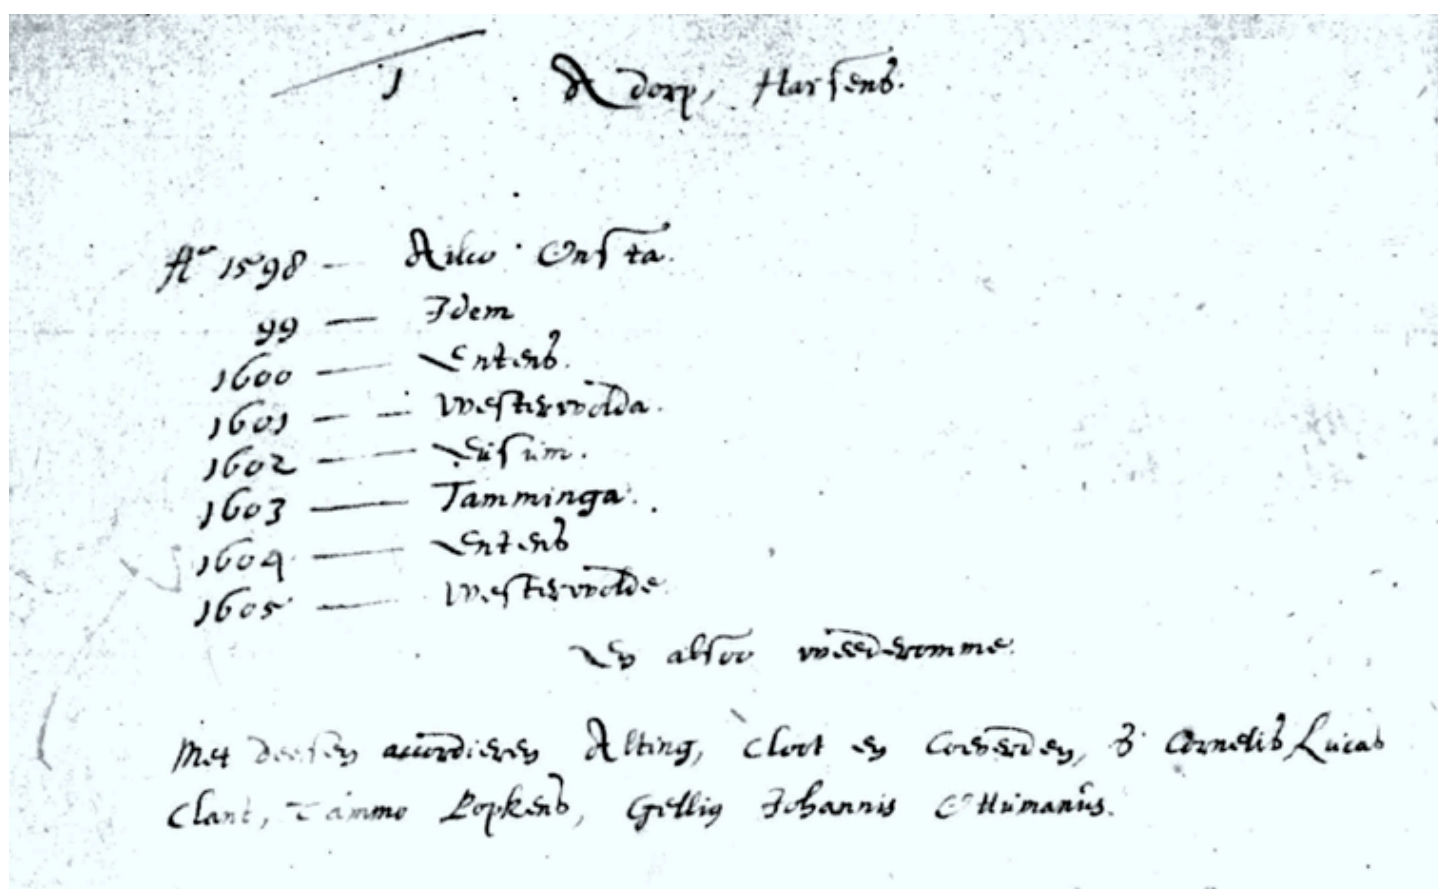 1 Adorp, Harsens.
Ao 1598 — Ailco Onsta.
99 — Idem
1600 — Entens.
1601 — Westerwolda.
1602 — Eüsüm.
1603 — Tamminga.
1604 — Entens
1605 — Westerwolde.
En alsoo weederomme.
Met deesen accordieren Alting, Cloot en Coeverden, Cornelis Lucas
Clant, Tammo Popkens, Gellius Johannis